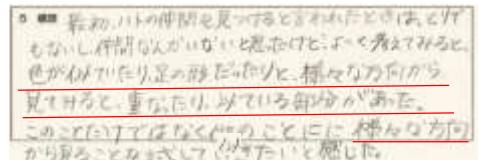 最初、ハトの仲間を見つけると言われたときは、とりで
もないし仲間なんかいないと思たけど、よーく考えてみると、
色が似ていたり、足の形だったりと、様々な方向から
見てみると、重なったり、似ている部分があった。
このことだけではなく のことにに様々な方向
から見ることを して いきたいと感じた。